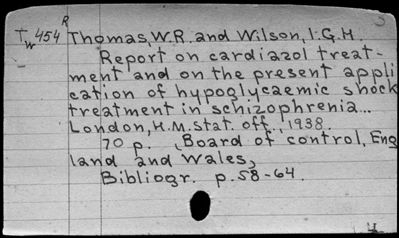 R
Tw 454 Thomas, W.R. and Wilson, I.G.H.
Report on cardiazol treat-
ment and on the present appli
cation of hypoglycaemic shock
treatment in schizophrenia...
London, H.M. Stat. off., 1938
70 p. (Board of control, Eng
land and Wales)
Bibliogr. p. 58-64.